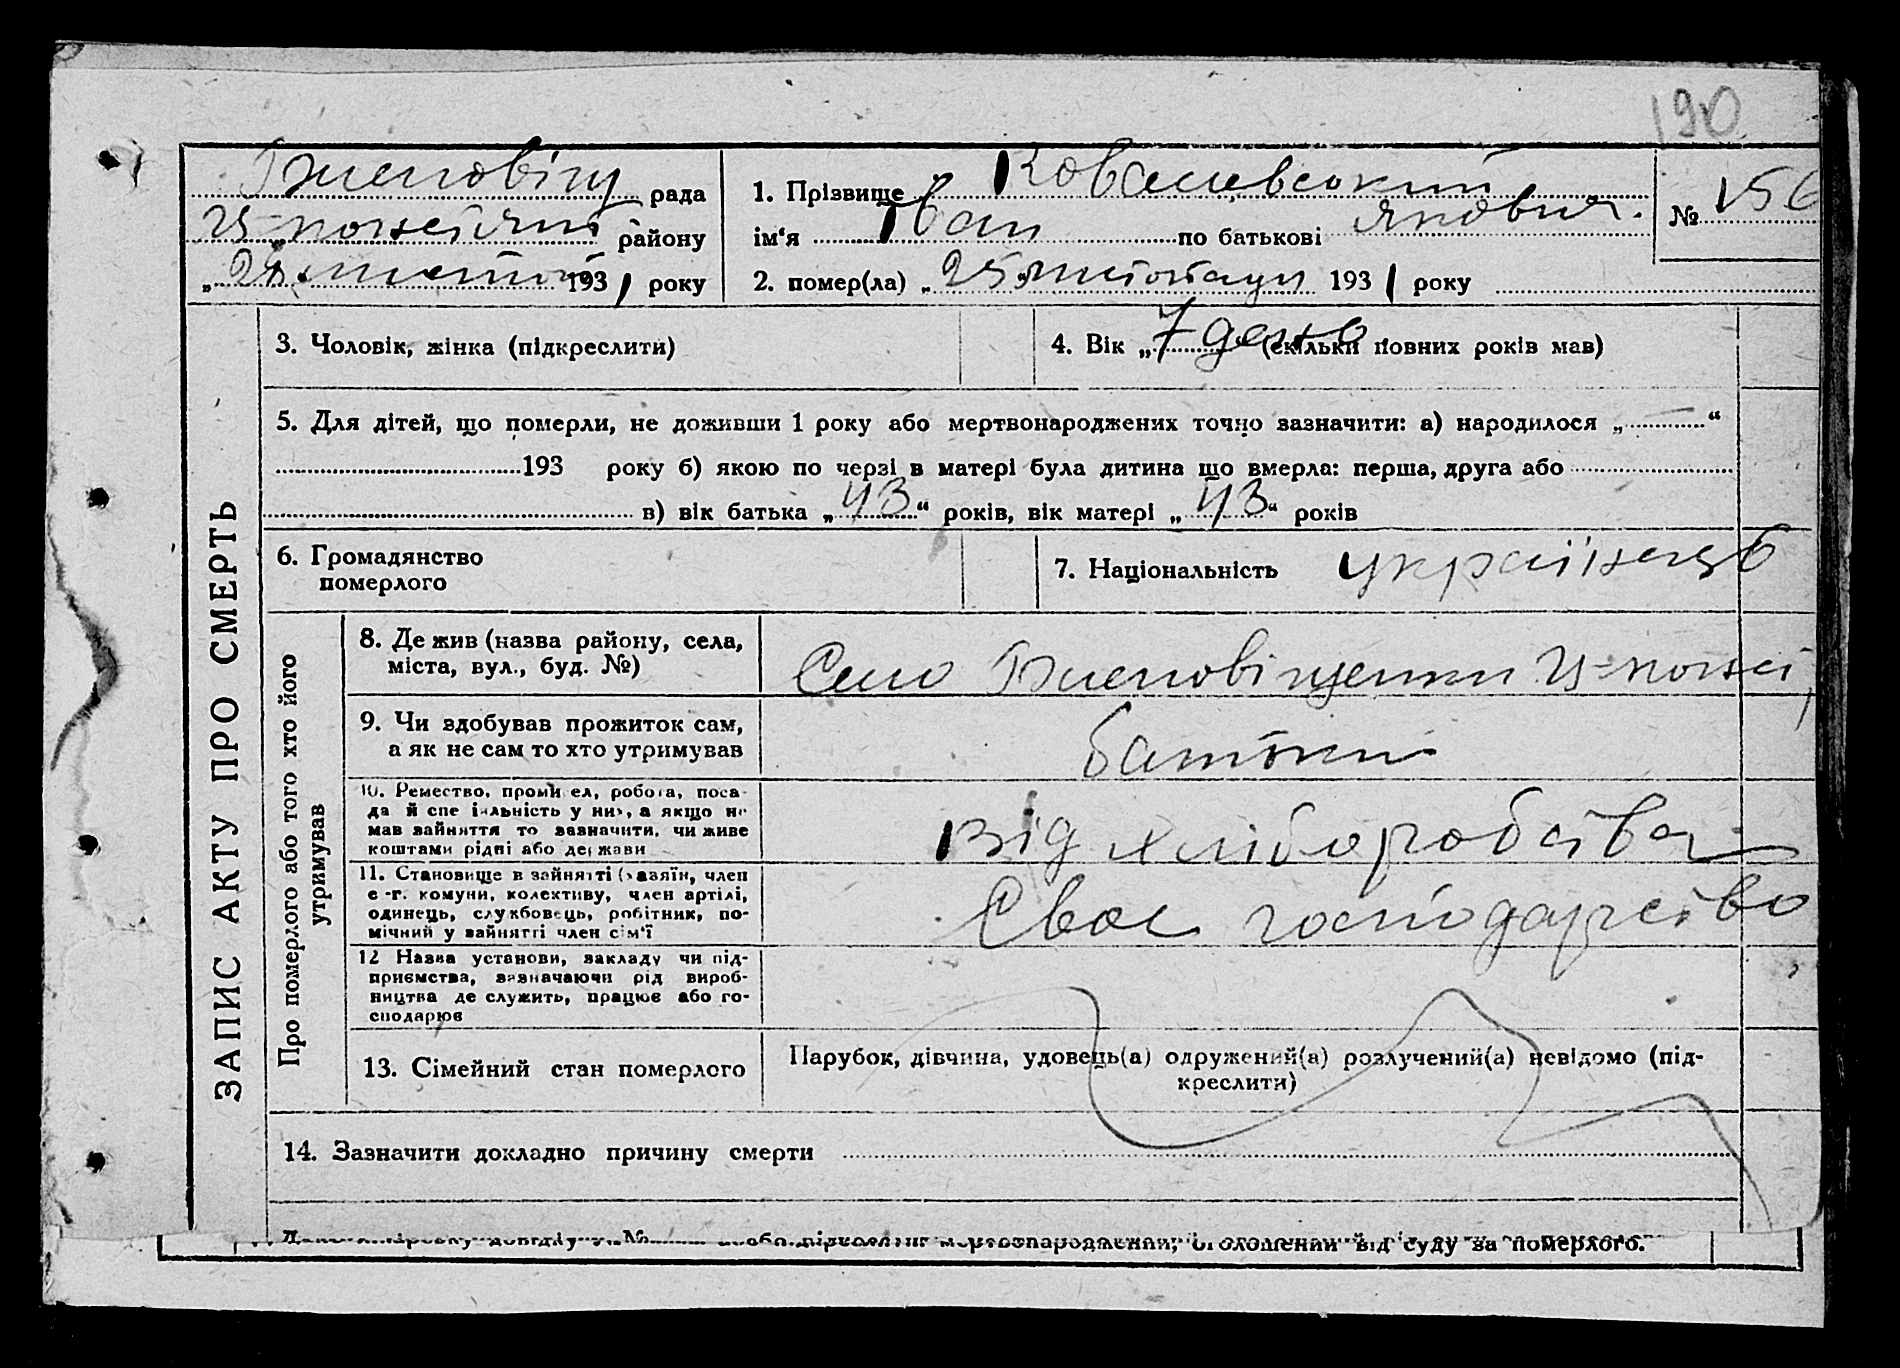 190
рада
1. Прізвище Ковалевський
№ 156
району
ім'я Іван по батькові Якович.
193 1 року
2. помер(ла) „25 листопаду 193 1 року
ЗАПИС АКТУ ПРО СМЕРТЬ
3. Чоловік, жінка (підкреслити)
4. Вік „7 день (скільки повних років мав)
5. Для дітей, що померли, не доживши 1 року або мертвонароджених точно зазначити: а) народилося „ — “
193 року б) якою по черзі в матері була дитина що вмерла: перша, друга або
в) вік батька „43“ років, вік матері „43“ років
6. Громадянство
померлого
7. Національність українець
Про померлого або того хто його
утримував
8. Де жив (назва району, села,
міста, вул., буд. №)
Село
9. Чи здобував прожиток сам,
а як не сам то хто утримував
батьки
10. Ремество, промисел, робота, поса-
да й спеціяльність у них, а якщо не
мав зайняття то зазначити, чи живе
коштами рідні або держави
Від хліборобства
11. Становище в зайнятті (хазяїн, член
с.-г. комуни, колективу, член артілі,
одинець, службовець, робітник, по-
мічний у зайнятті член сім'ї
Своє господарство
12 Назва установи, закладу чи під-
приємства, зазначаючи рід вироб-
ництва де служить, працює або го-
сподарює
13. Сімейний стан померлого
Парубок, дівчина, удовець(а) одружений(а) розлучений(а) невідомо (під-
креслити)
14. Зазначити докладно причину смерти
мертвонароджений, оголошений від суду за померлого.